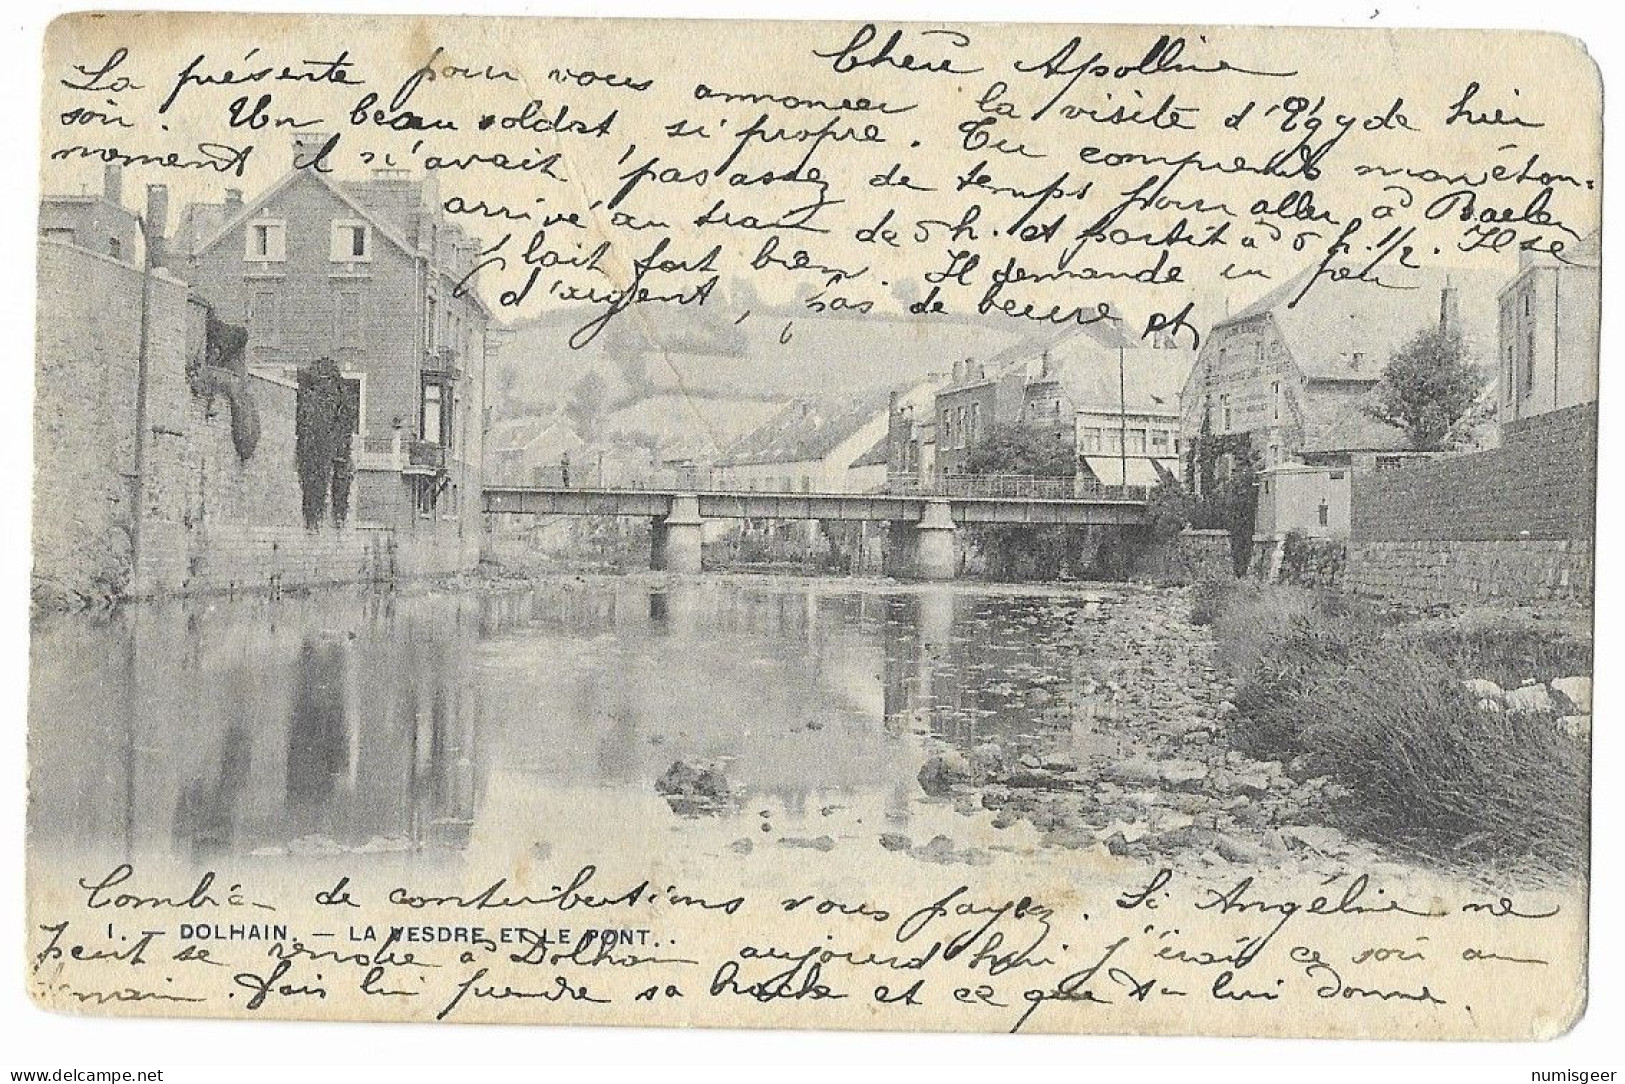 Chère Apolline
La présente pour vous annoncer la visite d'Egyde hier
soir. Un beau soldat, si propre. Tu comprends mon éton=
nement il n'avait pas assez de temps pour aller à Baelen
arrivé au train de 5 h. et partit à 6 h. 1/2. Il se
plait fort bien. Il demande un peu
d'argent, pas de beurre et
Combien de contributions vous payez. Si Angéline ne
1. — DOLHAIN. — LA VESDRE ET LE PONT.
peut se rendre à Dolhain aujourd'hui j'irai ce soir au
main. Fais lui prendre sa et ce que tu lui donne.